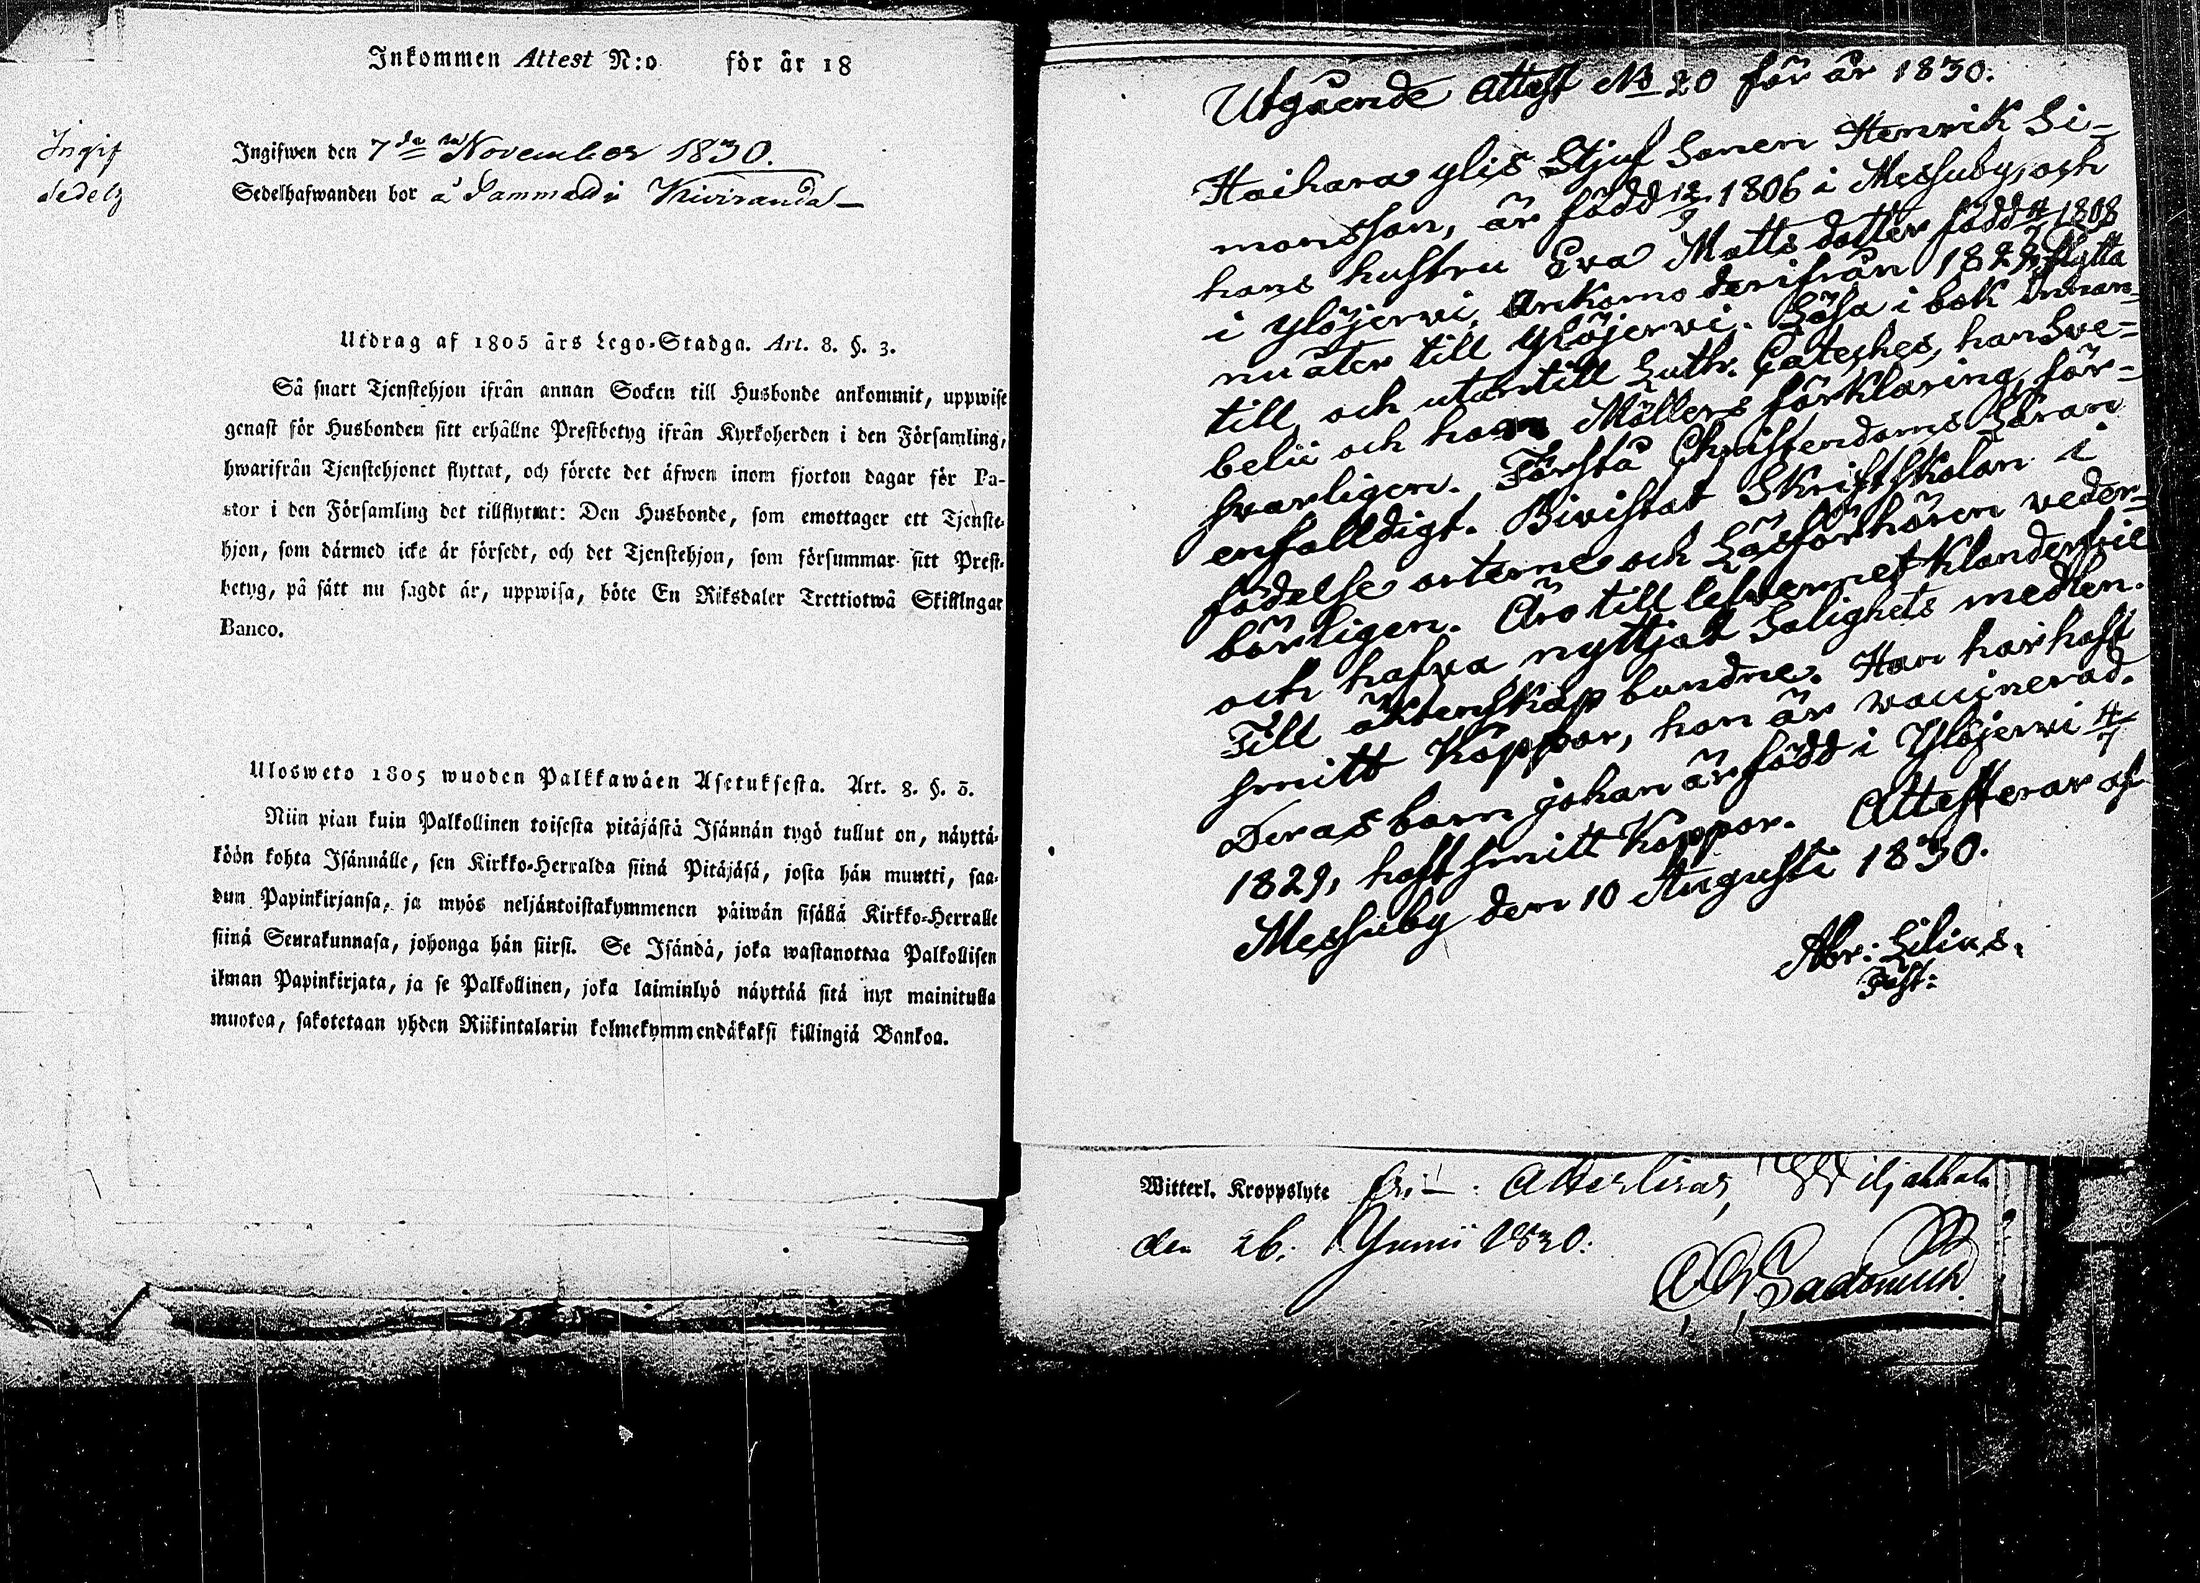 Inkommen Attest N:o för år 18
Ingif
Sedelh
Ingifwen den 7de November 1830.
Sedelhafwanden bor å Kiviranda
Utdrag af 1805 års Lego-Stadga. Art. 8. §. 3.
Så snart Tjenstehjon ifrån annan Socken till Husbonde ankommit, uppwise
genast för Husbonden sitt erhållne Prestbetyg ifrån Kyrkoherden i den Församling,
hwarifrån Tjenstehjonet flyttat, och förete det äfwen inom fjorton dagar för Pa-
stor i den Församling det tillflyttat: Den Husbonde, som emottager ett Tjenste-
hjon, som därmed icke är försedt, och det Tjenstehjon, som försummar sitt Prest-
betyg, på sätt nu sagdt är, uppwisa, böte En Riksdaler Trettiotwå Skillngar
Banco.
Ulosweto 1805 wuoden Palkkawäen Asetuksesta. Art. 8. §. 3.
Niin pian kuin Palkollinen toisesta pitäjästä Isännän tygö tullut on, näyttä-
köön kohta Isännälle, sen Kirkko-Herralda siinä Pitäjäsä, josta hän muutti, saa-
dun Papinkirjansa, ja myös neljäntoistakymmenen päiwän sisällä Kirkko-Herralle
siinä Seurakunnasa, johonga hän siirsi. Se Isändä, joka wastanottaa Palkollisen
ilman Papinkirjata, ja se Palkollinen, joka laiminlyö näyttää sitä nyt mainitulla
muotoa, sakotetaan yhden Riikintalarin kolmekymmendäkaksi killingiä Bankoa.
Utgående Attest No 20 för år 1830.
Haihara ylis Stjuf Sonen Henrik Si-
monsson, är född 12/9 1806 i Messuby, och
hans hustru Eva Matts dotter född 4/7 1808
i Ylöjerwi, Ankomo derifrån 1829, flytta
nu åter till Ylöjerwi. Läsa i bok innan-
till och utantill Luth. Cateches, han Swe-
belii och hon Möllers förklaring, för-
svarligen. Förstå Christendoms Läran
enfalldigt. Bivistat Skriftskolan i
födelse orterne och Läsförhören veder-
börligen. Äro till lefvernet klanderfrie
och hafva nyttjat Salighets medlen.
Till äktenskap bundne. Han har haft
smitt koppor, hon är waccinerad.
Deras barn Johan är född i Ylöjerwi 4/7
1829, haft smitt koppor. Attesterar af
Messuby den 10 Augusti 1830.
Abr: Lilius.
Past:
Witterl. Kroppslyte fri. Attesterar, Wiljakkala
den 26. Junii 1830.